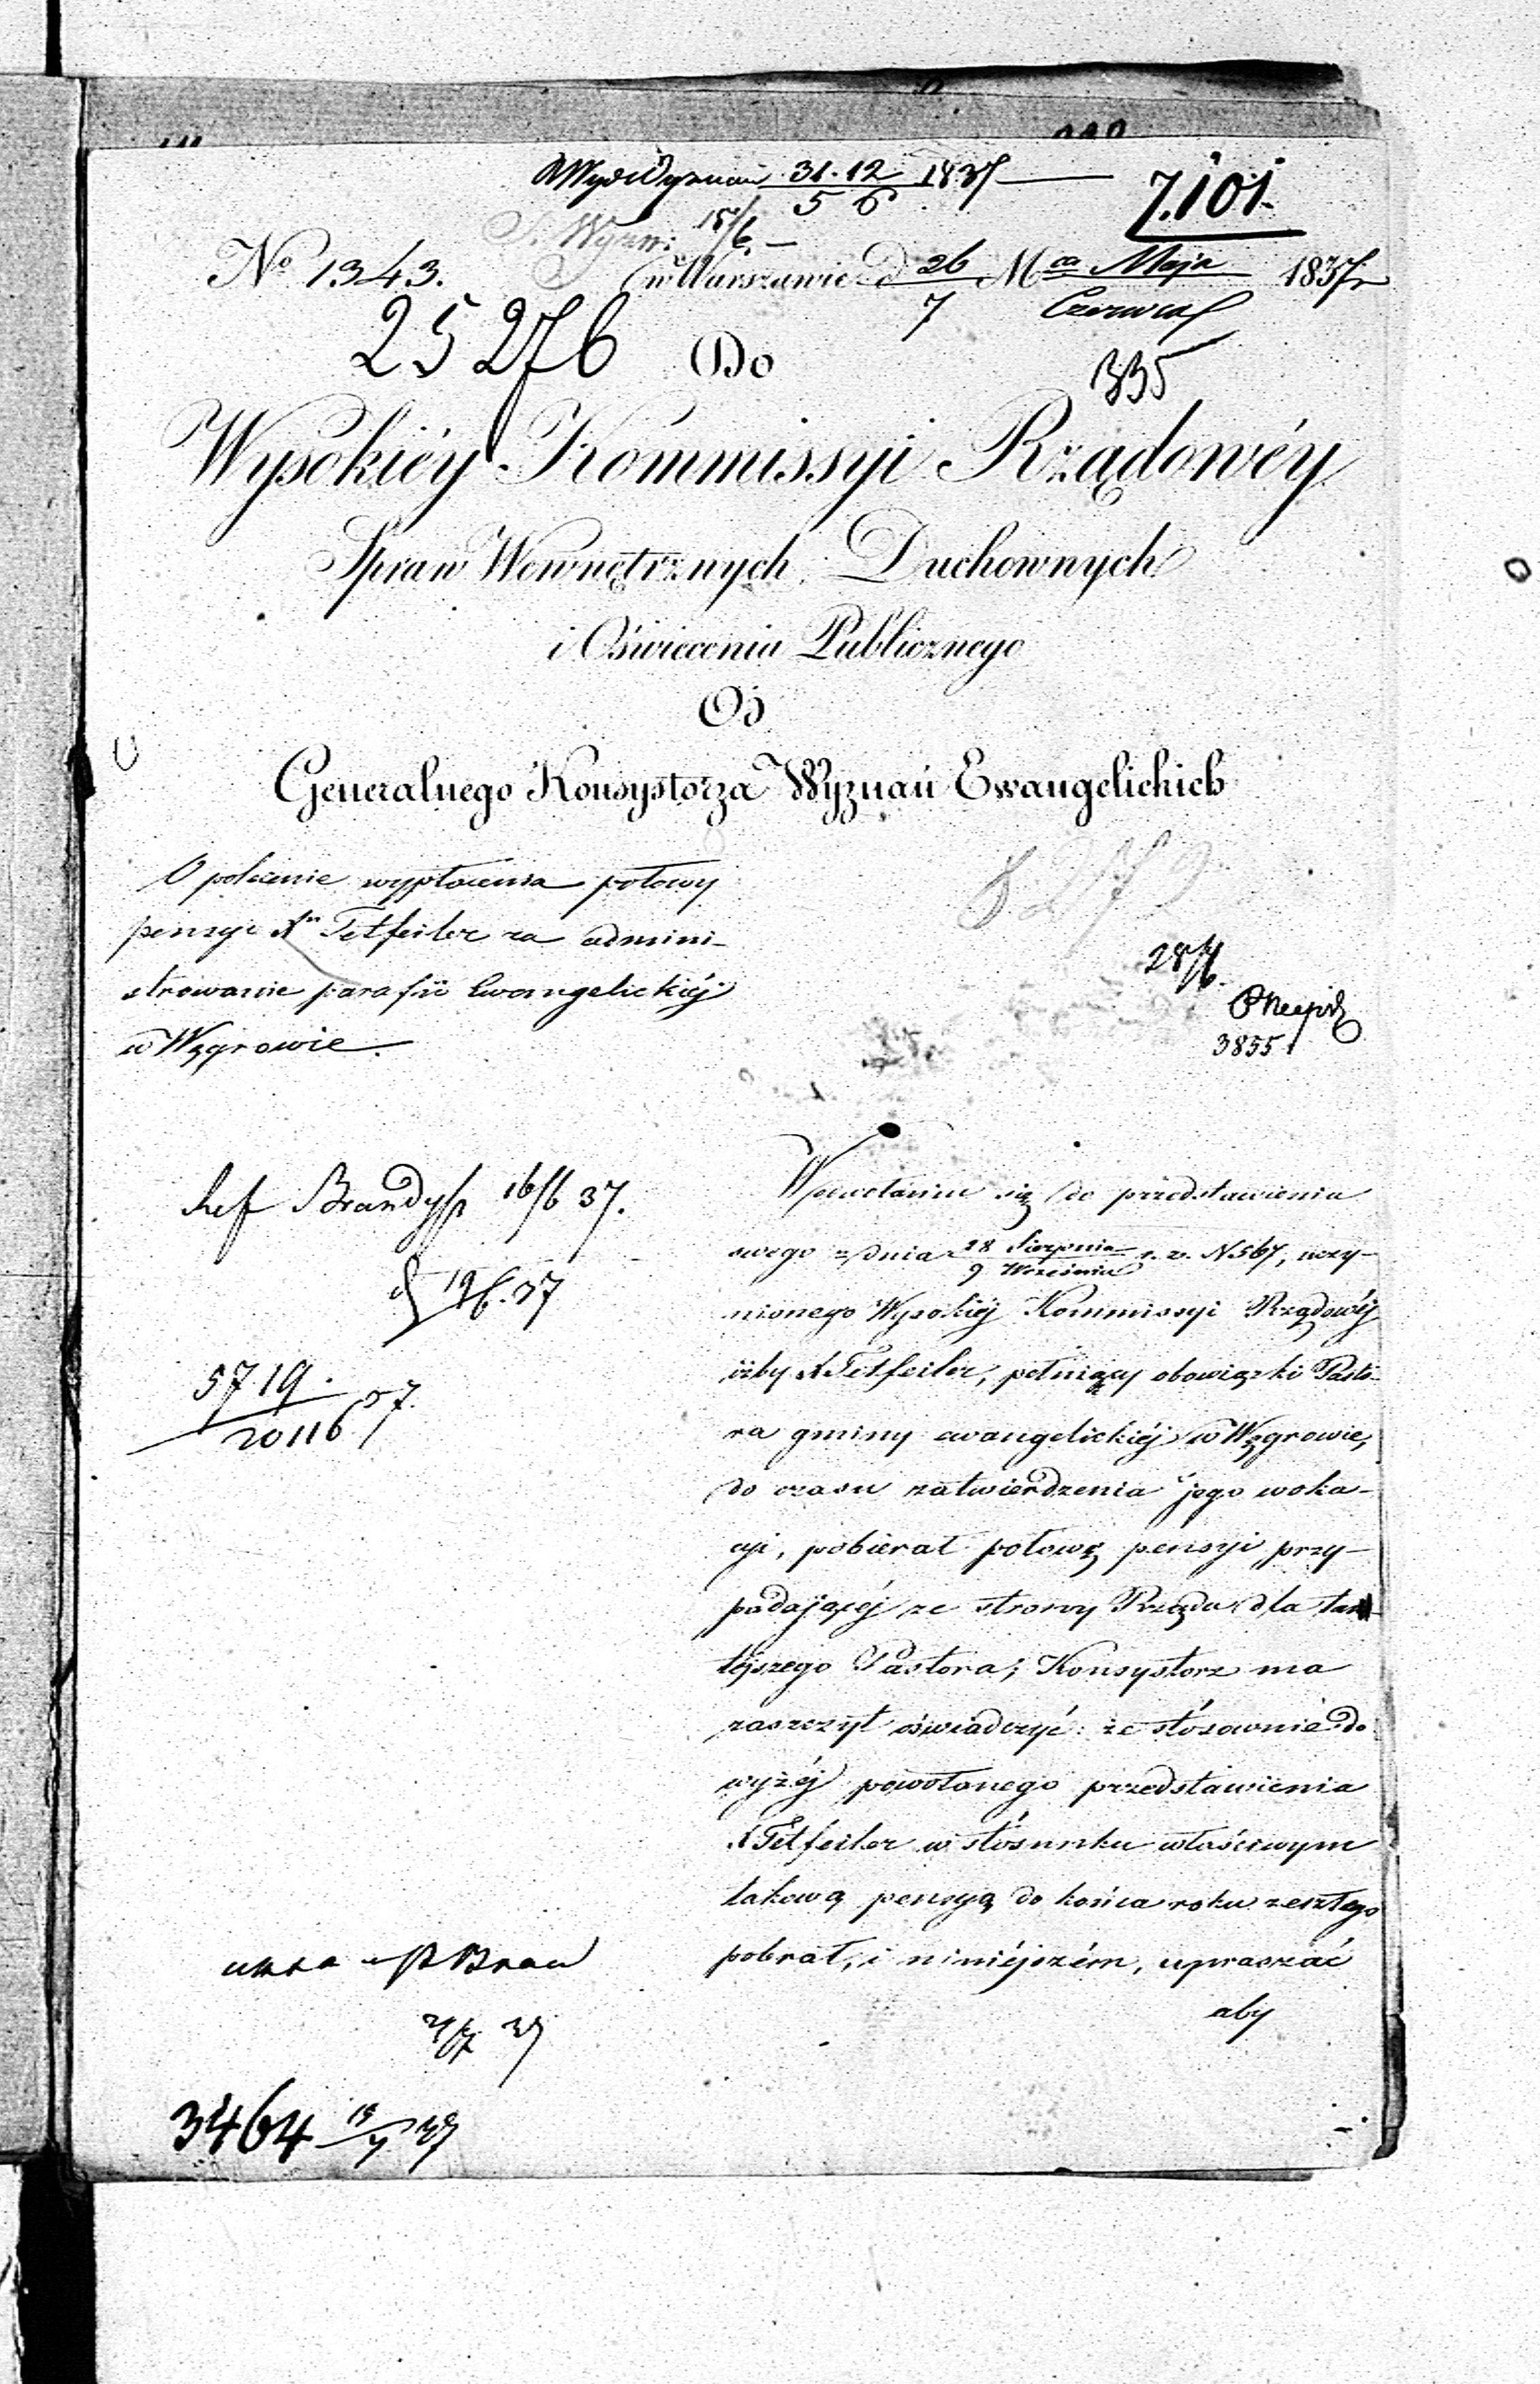 31.12 1837
5 6
7.101.
15/6
No 1343. w Warszawie d 26 Mca Maja 1837 r
7 Czerwca
25276 Do
335
Wysokiéy Kommissyi Rządowéy
Spraw Wewnętrznych Duchownych
i Oświecenia Publicznego
Od
Generalnego Konsystorza Wyznań Ewangelickich
O polecenie wypłacenia połowy
pensyi Xu Tetfeiler za admini-
strowanie parafii Ewangelickiéj
w Węgrowie.
28/6.
3855
Ref Brandysz 16/6 37.
19/6.37
5719.
20116 37.
W powołaniu się do przedstawienia
swego z dnia 28 Sierpnia r. z. N 567, uczy-
9 Września
nionego Wysokiéj Kommissyi Rządowéj
iżby X Tetfeiler, pełniący obowiązki Pasto-
ra gminy ewangelickiéj w Węgrowie,
do czasu zatwierdzenia jego woka-
cyi, pobierał połowę pensyi przy-
padającéj ze strony Rządu dla tam-
tejszego Pastora; Konsystorz ma
zaszczyt oświadczyć: że stósownie do
wyżéj powołanego przedstawienia
X Tetfeiler w stósunku właściwym
takową pensyą do końca roku zeszłego
pobrał, i niniéjszém, upraszać
aby
3464 15/7 37